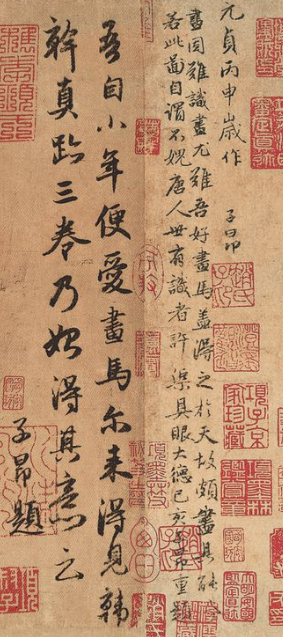 元貞丙申歲作　子昂
畫固難識畫尤難吾好畫馬蓋得之於天故頗盡其能事
若此圖自謂不媿唐人世有識者許渠具眼大德己亥子昂重題
吾自小年便愛畫馬爾來得見韓
幹真跡三卷乃始得其意云
子昂題
趙氏子昂
項子京家珍藏